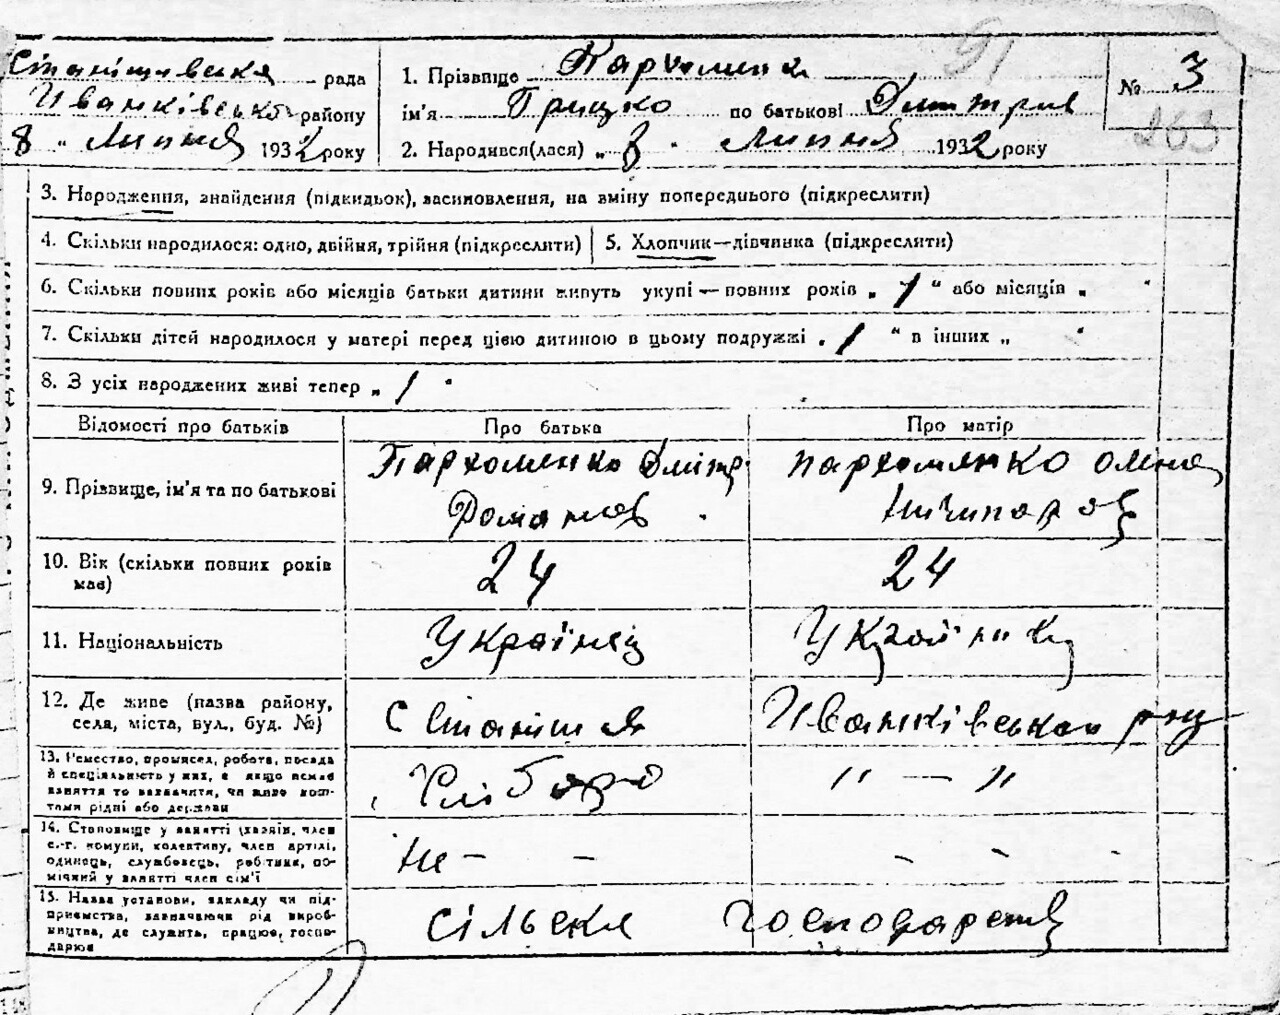 Станішивська рада
Иванківсько району
8 " Липня 1932 року
1. Прізвище Пархоменк
ім'я Грицко по батькові Дмитров
2. Народився(лася) „ 8 " Липня 1932 року
91
№ 3
263
3. Народження, знайдення (підкидьок), засиновлення, на зміну попереднього (підкреслити)
4. Скільки народилося: одно, двійня, трійня (підкреслити)
5. Хлопчик—дівчинка (підкреслити)
6. Скільки повних років або місяців батьки дитини живуть укупі — повних років „ 1 " або місяців „ "
7. Скільки дітей народилося у матері перед цією дитиною в цьому подружжі „ 1 " в інших „ "
8. З усіх народжених живі тепер „ 1 "
Відомості про батьків Про батька Про матір
9. Прізвище, ім'я та по батькові
Пархоменко Дмітр
Романов
пархоменко олена
Ничипоров
10. Вік (скільки повних років
має)
24 24
11. Національність Українец Українка
12. Де живе (назва району,
села, міста, вул., буд. №)
с Станішівка Иванківськой р-ну
13. Ремество, промисел, робота, посада
й спеціяльність у них, а якщо немає
заняття то зазначити, чи живе кош-
тами рідні або держави
Хлібороб " — "
14. Становище у занятті (хазяїн, член
с.-г. комуни, колективу, член артілі,
одинець, службовець, робітник, по-
мічний у занятті член сім'ї
Не - - - - -
15. Назва установи, закладу чи під-
приємства, зазначаючи рід вироб-
ництва, де служить, працює, госпо-
дарює
сільске господарств